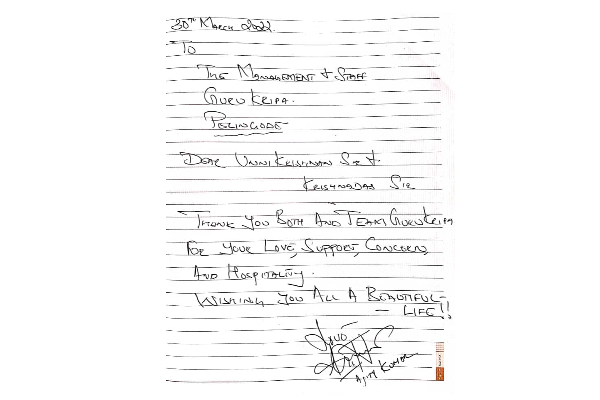 30th March 2022
To
The Management & Staff
GuruKripa.
Peringode
Dear UnniKrishnan Sir &
Krishnadas Sir
Thank You Both And Team GuruKripa
For Your Love, Support, Concern,
And Hospitality.
Wishing You All A Beautiful
— Life!!
Ajith Kumar